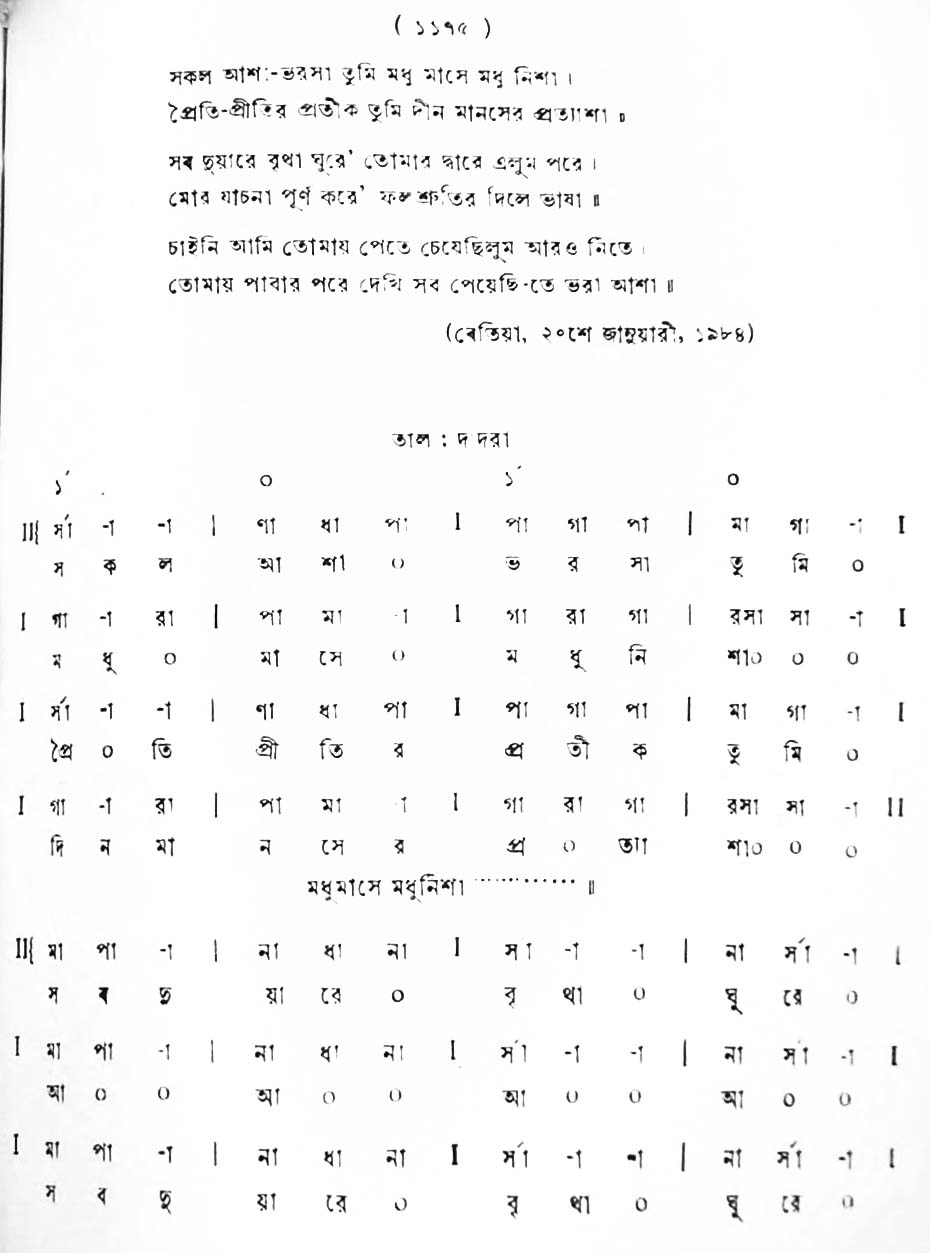 ( ১১৭৫ )
সকল আশা-ভরসা তুমি মধু মাসে মধু নিশা ।
প্রৈতি-প্রীতির প্রতীক তুমি দীন মানসের প্রত্যাশা ॥
সব দুয়ারে বৃথা ঘুরে' তোমার দ্বারে এলুম পরে ।
মোর যাচনা পূর্ণ করে' ফলশ্রুতির দিলে ভাষা ॥
চাইনি আমি তোমায় পেতে চেয়েছিলুম আরও নিতে ।
তোমায় পাবার পরে দেখি সব পেয়েছি-তে ভরা আশা ॥
(বেতিয়া, ২০শে জানুয়ারী, ১৯৮৪)
তাল : দ দরা
১´ ০ ১´ ০
II{ র্সা -া -া | ণা ধা পা I পা গা পা | মা গা -া I
স ক ল আ শা ০ ভ র সা তু মি ০
I গা -া রা | পা মা -া I গা রা গা | রসা সা -া I
ম ধু ০ মা সে ০ ম ধু নি শা০ ০ ০
I র্সা -া -া | ণা ধা পা I পা গা পা | মা গা -া I
প্রৈ ০ তি প্রী তি র প্র তী ক তু মি ০
I গা -া রা | পা মা -া I গা রা গা | রসা সা -া II
দি ন মা ন সে র প্র ০ ত্যা শা০ ০ ০
মধুমাসে মধুনিশা ············ ॥
II{ মা পা -া | না ধা না I সা -া -া | না র্সা -া I
স ব দু য়া রে ০ বৃ থা ০ ঘু রে ০
I মা পা -া | না ধা না I র্সা -া -া | না র্সা -া I
আ ০ ০ আ ০ ০ আ ০ ০ আ ০ ০
I মা পা -া | না ধা না I র্সা -া -া | না র্সা -া I
স ব দু য়া রে ০ বৃ থা ০ ঘু রে ০